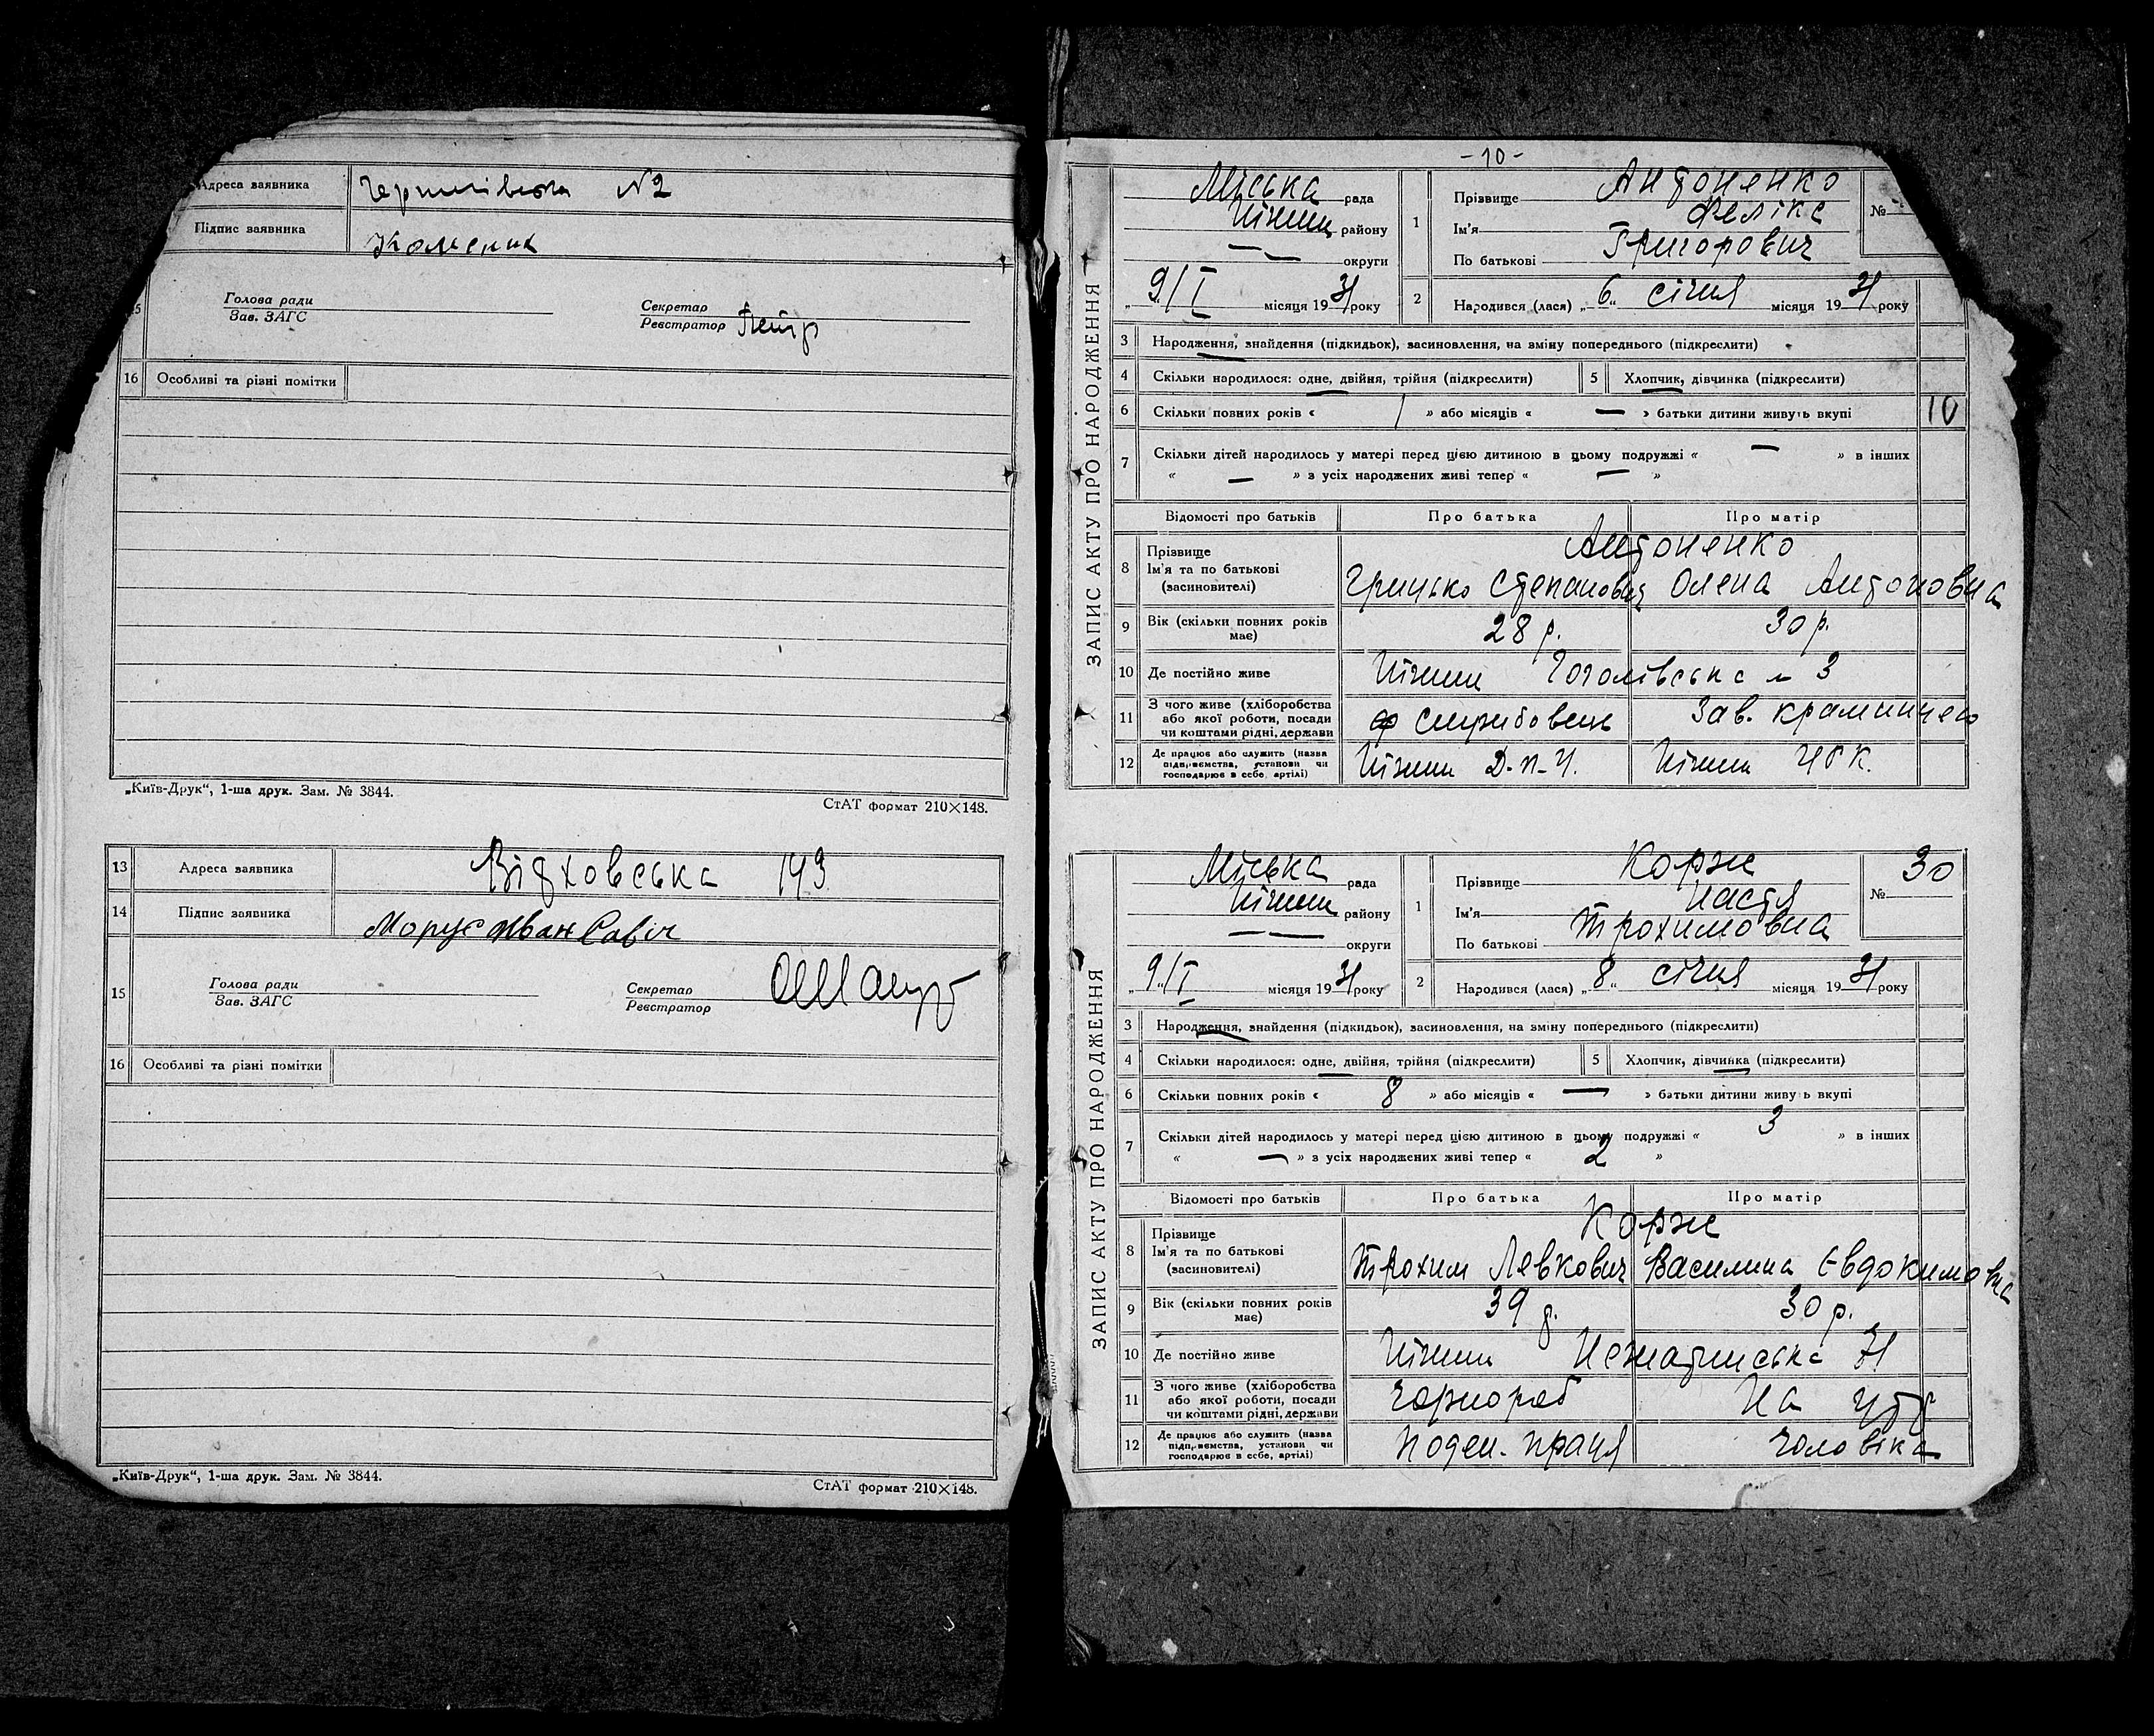 Адреса заявника Чернігівська N2
Підпис заявника
Голова ради
Зав. ЗАГС
Секретар
Реєстратор
16 Особливі та різні помітки
„Київ-Друк“, 1-ша друк. Зам. № 3844.
СтАТ формат 210×148.
13 Адреса заявника 143
14 Підпис заявника Іван Савіч
15 Голова ради
Зав. ЗАГС
Секретар
Реєстратор
16 Особливі та різні помітки
„Київ-Друк“, 1-ша друк. Зам. № 3844.
СтАТ формат 210×148.
-10-
ЗАПИС АКТУ ПРО НАРОДЖЕННЯ
Міська рада
Ніжин району
— — округи
„9„/I місяця 1931 року
1 Прізвище Антоненко
Ім'я Фелікс
По батькові Григорович
№
2 Народився (лася) „6„ січня місяця 1931 року
3 Народження, знайдення (підкидьок), засиновлення, на зміну попереднього (підкреслити)
4 Скільки народилося: одне, двійня, трійня (підкреслити) 5 Хлопчик, дівчинка (підкреслити)
6 Скільки повних років « 1 » або місяців « — » батьки дитини живуть вкупі 10
7 Скільки дітей народилось у матері перед цією дитиною в цьому подружжі « — » в інших
« — » з усіх народжених живі тепер « — »
Відомості про батьків Про батька Про матір
8 Прізвище Антоненко
Ім'я та по батькові
(засиновителі) Грицько Степанович Олена Антоновна
9 Вік (скільки повних років має) 28 р. 30 р.
10 Де постійно живе Ніжин Гоголівська 3
11 З чого живе (хліборобства
або якої роботи, посади
чи коштами рідні, держави службовець Зав. крамницею
12 Де працює або служить (назва
підприємства, установи чи
господарює в себе, артілі) Ніжин Ніжин
ЗАПИС АКТУ ПРО НАРОДЖЕННЯ
Міська рада
Ніжин району
— — округи
„9„/I місяця 1931 року
1 Прізвище Корж
Ім'я Настя
По батькові Трохимовна
№ 30
2 Народився (лася) „8„ січня місяця 1931 року
3 Народження, знайдення (підкидьок), засиновлення, на зміну попереднього (підкреслити)
4 Скільки народилося: одне, двійня, трійня (підкреслити) 5 Хлопчик, дівчинка (підкреслити)
6 Скільки повних років « 8 » або місяців « — » батьки дитини живуть вкупі
7 Скільки дітей народилось у матері перед цією дитиною в цьому подружжі « 3 » в інших
« — » з усіх народжених живі тепер « 2 »
Відомості про батьків Про батька Про матір
8 Прізвище Корж
Ім'я та по батькові
(засиновителі) Трохим Левкович Василина Євдокимовна
9 Вік (скільки повних років має) 39 р. 30 р.
10 Де постійно живе Ніжин 31
11 З чого живе (хліборобства
або якої роботи, посади
чи коштами рідні, держави чорнороб На утр
12 Де працює або служить (назва
підприємства, установи чи
господарює в себе, артілі) поден. праця чоловіка